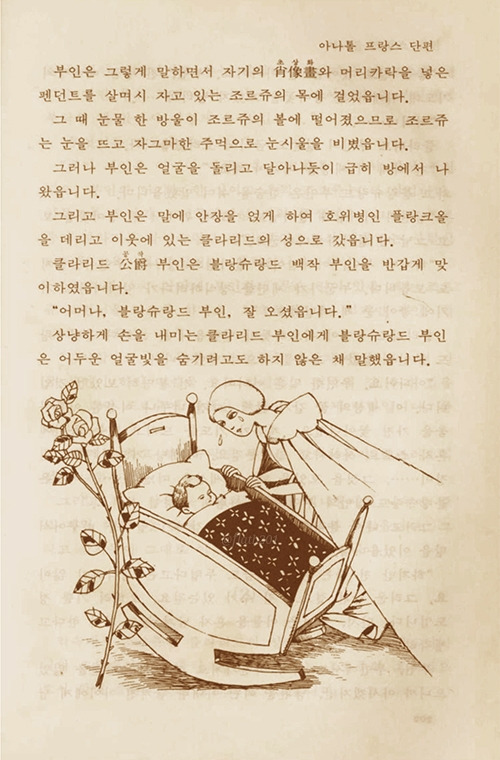 아나톨 프랑스 단편
부인은 그렇게 말하면서 자기의 肖像畫와 머리카락을 넣은
펜던트를 살며시 자고 있는 조르쥬의 목에 걸었읍니다.
그 때 눈물 한 방울이 조르쥬의 볼에 떨어졌으므로 조르쥬
는 눈을 뜨고 자그마한 주먹으로 눈시울을 비볐읍니다.
그러나 부인은 얼굴을 돌리고 달아나듯이 급히 방에서 나
왔읍니다.
그리고 부인은 말에 안장을 얹게 하여 호위병인 플랑크울
을 데리고 이웃에 있는 클라리드의 성으로 갔읍니다.
클라리드 公爵 부인은 블랑슈랑드 백작 부인을 반갑게 맞
이하였읍니다.
“어머나, 블랑슈랑드 부인, 잘 오셨읍니다.”
상냥하게 손을 내미는 클라리드 부인에게 블랑슈랑드 부인
은 어두운 얼굴빛을 숨기려고도 하지 않은 채 말했읍니다.